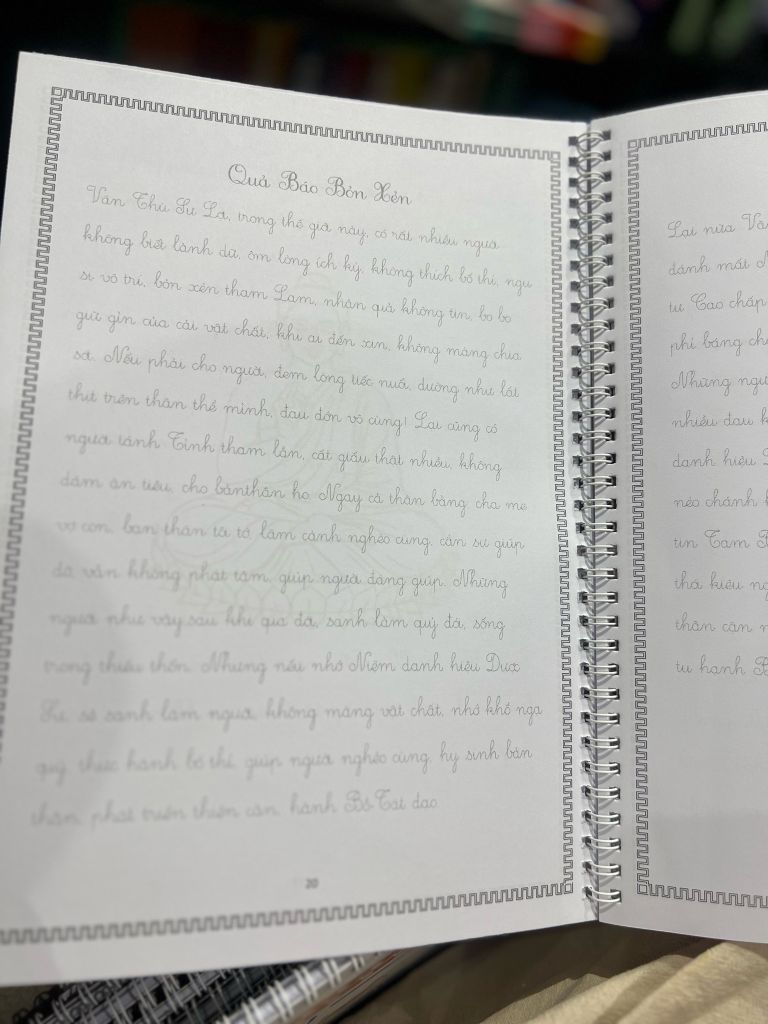 Quả Báo Bỏn Xẻn
Văn Thù Sư Lợi, trong thế giới này, có rất nhiều người
không biết lành dữ, ôm lòng ích kỷ, không thích bố thí, ngu
si vô trí, bỏn xẻn tham Lam, nhân quả không tin, bo bo
giữ gìn của cải vật chất, khi ai đến xin, không màng chia
sớt. Nếu phải cho người, đem lòng tiếc nuối, dường như lát
thịt trên thân thể mình, đau đớn vô cùng! Lại cũng có
người tánh Tình tham lẫn, cất giấu thật nhiều, không
dám ăn tiêu, cho bảnthân họ. Ngay cả thân bằng cha mẹ
vợ con, bạn thân tôi tớ, lâm cảnh nghèo cùng, cần sự giúp
đỡ vẫn không phát tâm, giúp người đáng giúp. Những
người như vậy sau khi qua đời, sanh làm quỷ đói, sống
trong thiếu thốn. Nhưng nếu nhớ Niệm danh hiệu Dược
Sư, sẽ sanh làm người, không màng vật chất, nhớ khổ ngạ
quỷ, thực hành bố thí, giúp người nghèo cùng, hy sinh bản
thân, phát triển thiện căn, hành Bồ Tát đạo.
20
Lại nữa Vă
đánh mất
tu Cao chấp
phỉ báng ch
Những ngư
nhiều đau k
danh hiệu
nẻo chánh
tin Tam B
thói kiêu ng
thân cận
tu hành B